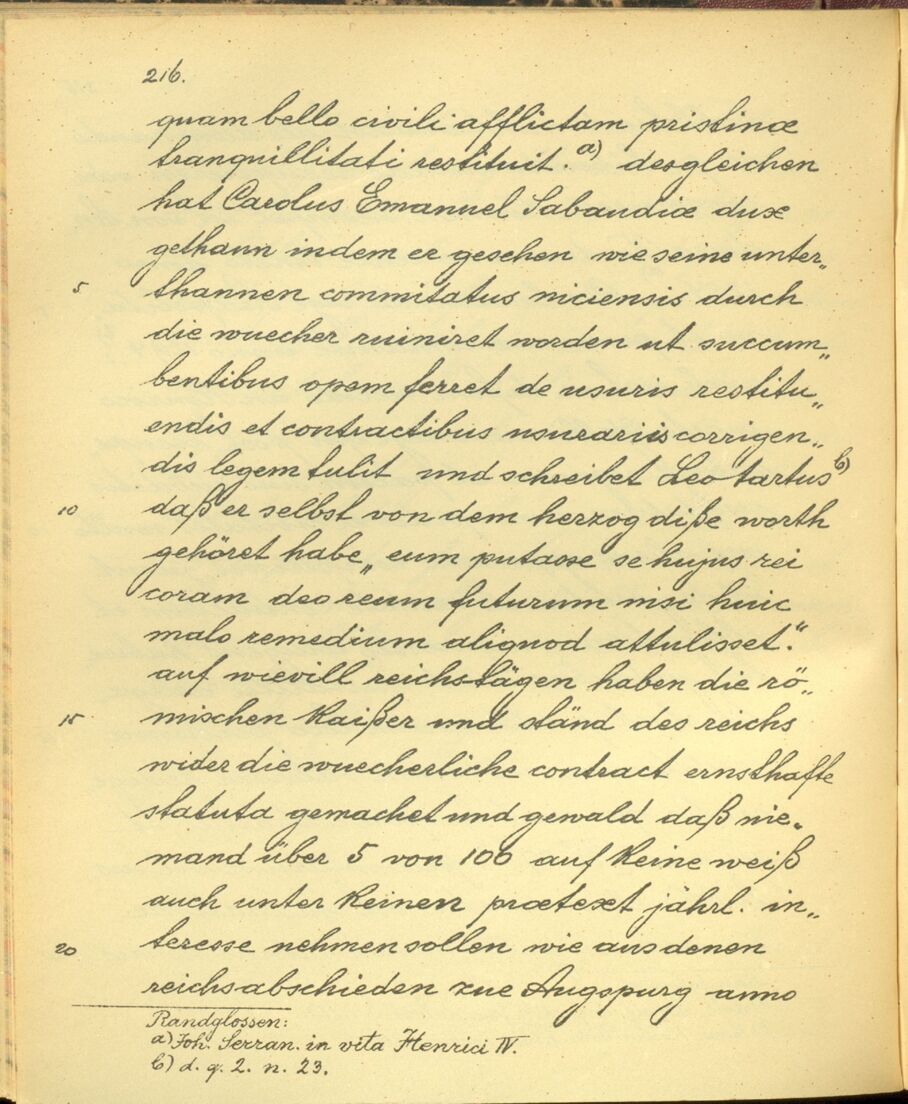 216.
quam bello civili afflictam pristinæ
tranquillitati restituit. a) desgleichen
hat Carolus Emanuel Sabaudiæ dux
gethann indem er gesehen wie seine unter„
5 thannen commitatus niciensis durch
die wuecher ruiniret worden ut succum„
bentibus opem ferret de usuris restitu„
endis et contractibus usurariis corrigen„
dis legem tulit und schreibet Leotartus b)
10 daß er selbst von dem herzog diße worth
gehöret habe „eum putasse se hujus rei
coram deo reum futurum nisi huic
malo remedium aliquod attulisset.“
auf wievill reichstägen haben die rö„
15 mischen Kaißer und ständ des reichs
wider die wuecherliche contract ernsthafte
statuta gemachet und gewald daß nie„
mand über 5 von 100 auf keine weiß
auch unter keinen prætext jährl. in„
20 teresse nehmen sollen wie aus denen
reichsabschieden zue Augspurg anno
Randglossen:
a) Joh. Serran. in vita Henrici IV.
b) d. q. 2. n. 23.